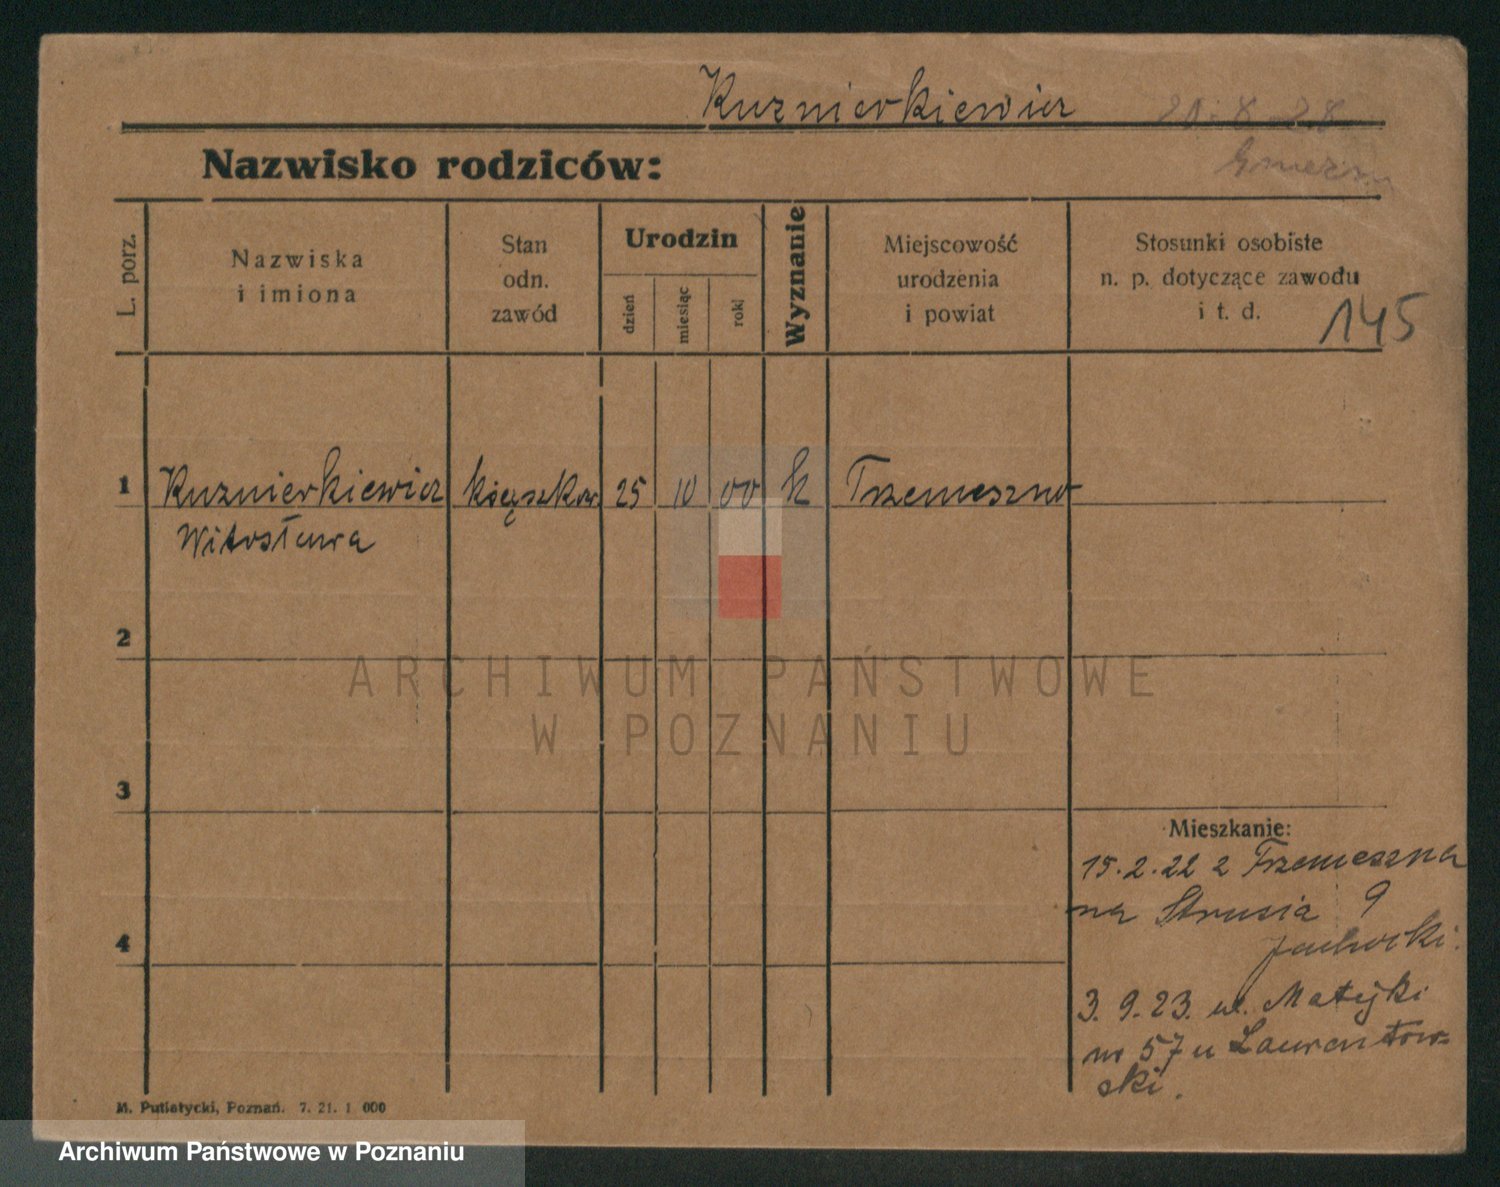 Kuznierkiewicz
21. 8. 28
Gniezno
Nazwisko rodziców:
L. porz.
Nazwiska
i imiona
Stan
odn.
zawód
Urodzin
dzień
miesiąc
rok
Wyznanie
Miejscowość
urodzenia
i powiat
Stosunki osobiste
n. p. dotyczące zawodu
i t. d.
145
1 Kuznierkiewicz książkow. 25 10 00 k Trzemeszno
Witosława
2
3
4
Mieszkanie:
15. 2. 22 z Trzemeszna
na Strusia 9
3. 9. 23. ul. Matejki
no 57 u Laurentow-
ski.
M. Putiatycki, Poznań. 7. 21. 1 000
ARCHIWUM PAŃSTWOWE
W POZNANIU
Archiwum Państwowe w Poznaniu